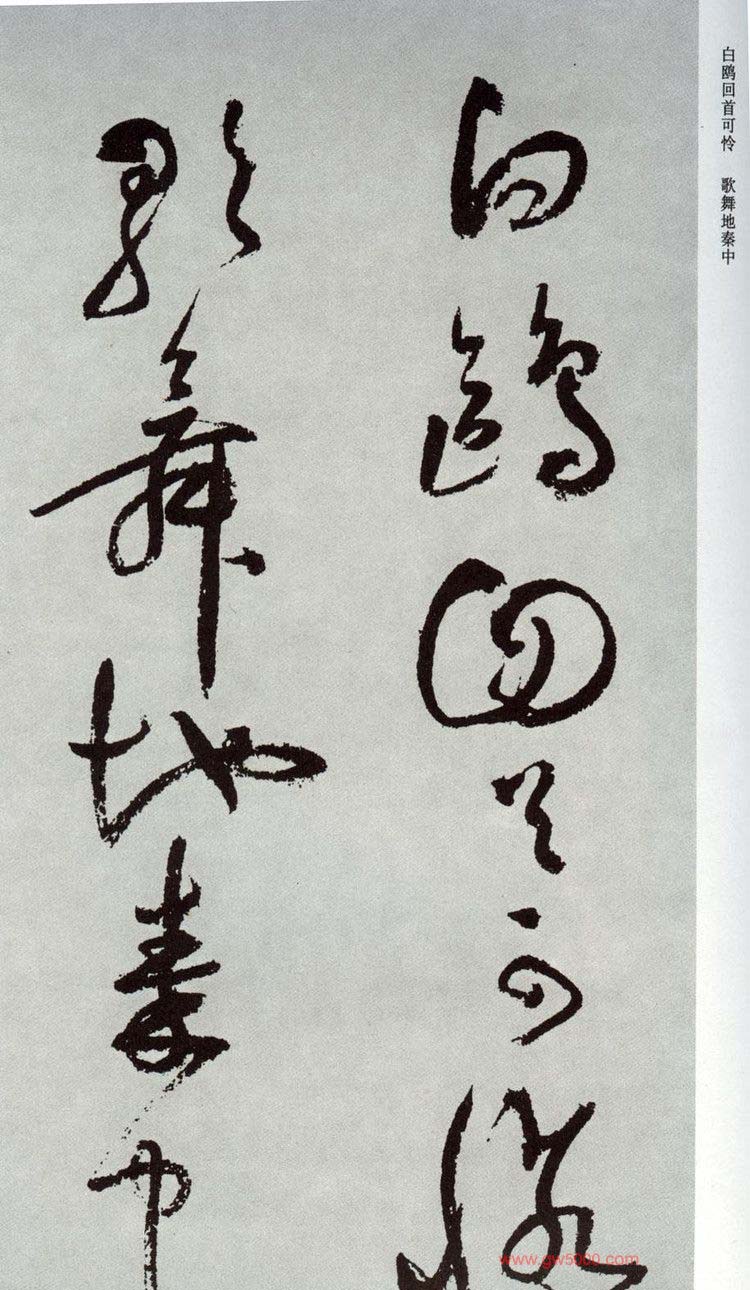 白鸥回首可怜　歌舞地秦中
白鷗回首可憐
歌舞地秦中
www.gw5000.com